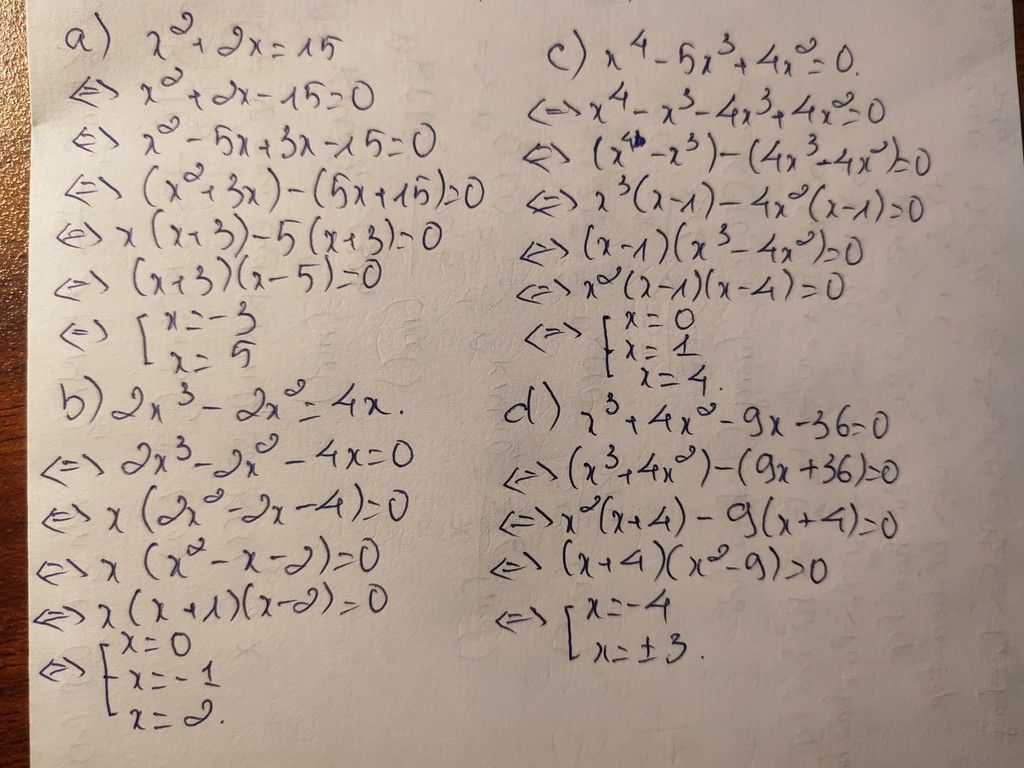 a) x² + 2x = 15
⇔ x² + 2x - 15 = 0
⇔ x² - 5x + 3x - 15 = 0
⇔ (x² + 3x) - (5x + 15) = 0
⇔ x(x + 3) - 5(x + 3) = 0
⇔ (x + 3)(x - 5) = 0
⇔ [ x = -3
x = 5
b) 2x³ - 2x² = 4x.
⇔ 2x³ - 2x² - 4x = 0
⇔ x(2x² - 2x - 4) = 0
⇔ x(x² - x - 2) = 0
⇔ x(x + 1)(x - 2) = 0
⇔ [ x = 0
x = -1
x = 2.
c) x⁴ - 5x³ + 4x² = 0.
⇔ x⁴ - x³ - 4x³ + 4x² = 0
⇔ (x⁴ - x³) - (4x³ - 4x²) = 0
⇔ x³(x - 1) - 4x²(x - 1) = 0
⇔ (x - 1)(x³ - 4x²) = 0
⇔ x²(x - 1)(x - 4) = 0
⇔ [ x = 0
x = 1
x = 4.
d) x³ + 4x² - 9x - 36 = 0
⇔ (x³ + 4x²) - (9x + 36) = 0
⇔ x²(x + 4) - 9(x + 4) = 0
⇔ (x + 4)(x² - 9) = 0
⇔ [ x = -4
x = ± 3.